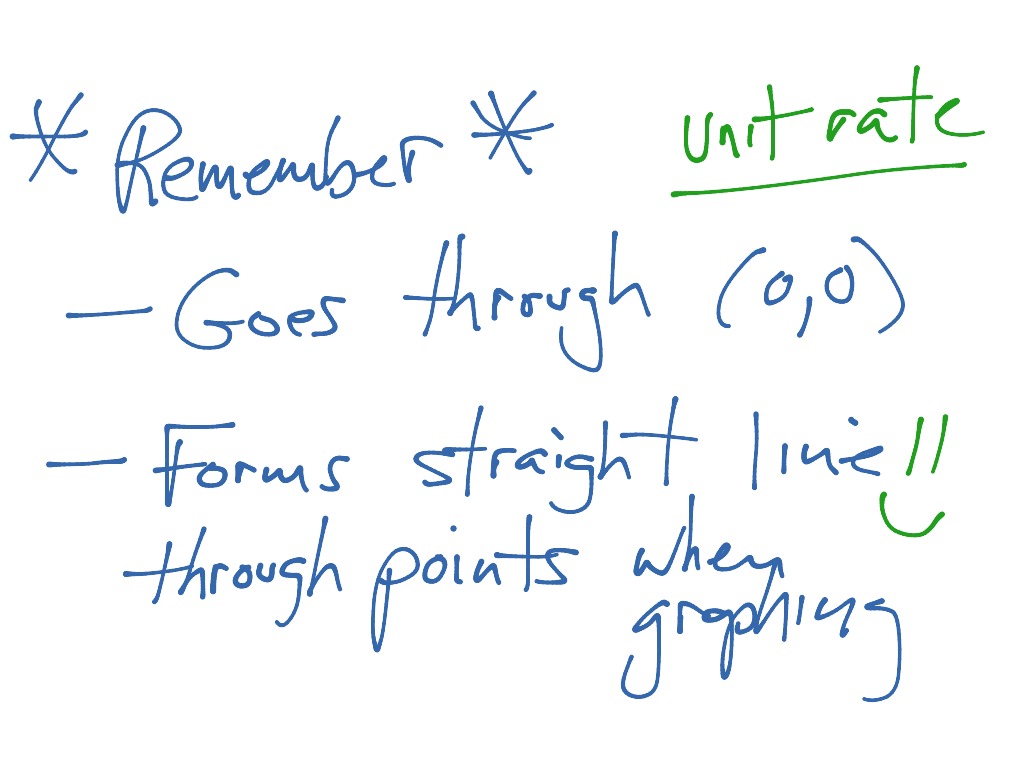 * Remember * unit rate
— Goes through (0,0)
— Forms straight line
through points when
graphing